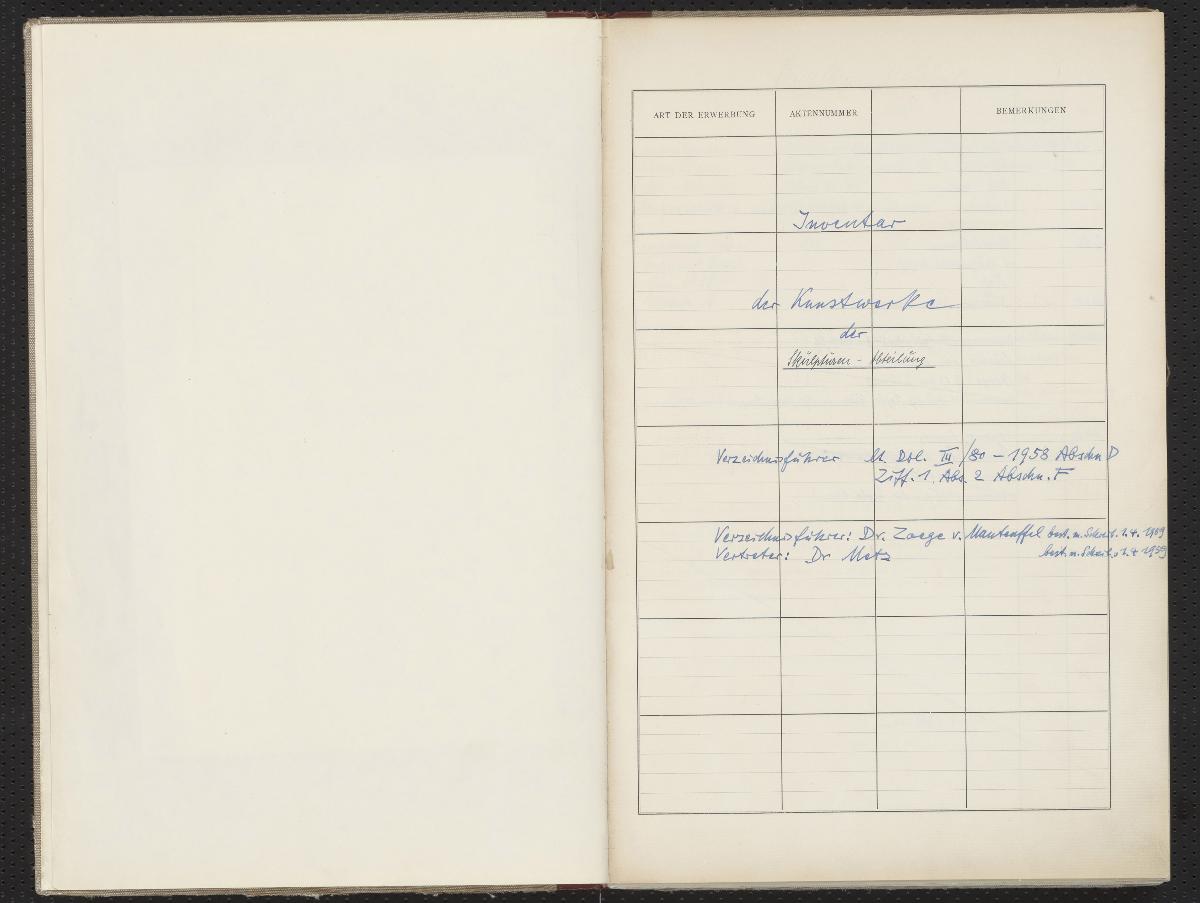 ART DER ERWERBUNG AKTENNUMMER BEMERKUNGEN
Inventar
der Kunstwerke
der
Skulpturen - Abteilung
Verzeichnisführer lt. Dbl. III/80 - 1958 Abschn D
Ziff. 1. Abs. 2 Abschn. F
Verzeichnisführer: Dr. Zoege v. Manteuffel best. m. Schreib. 1.4. 1959
Vertreter: Dr Metz best. m. Schreib. 1.4 1959